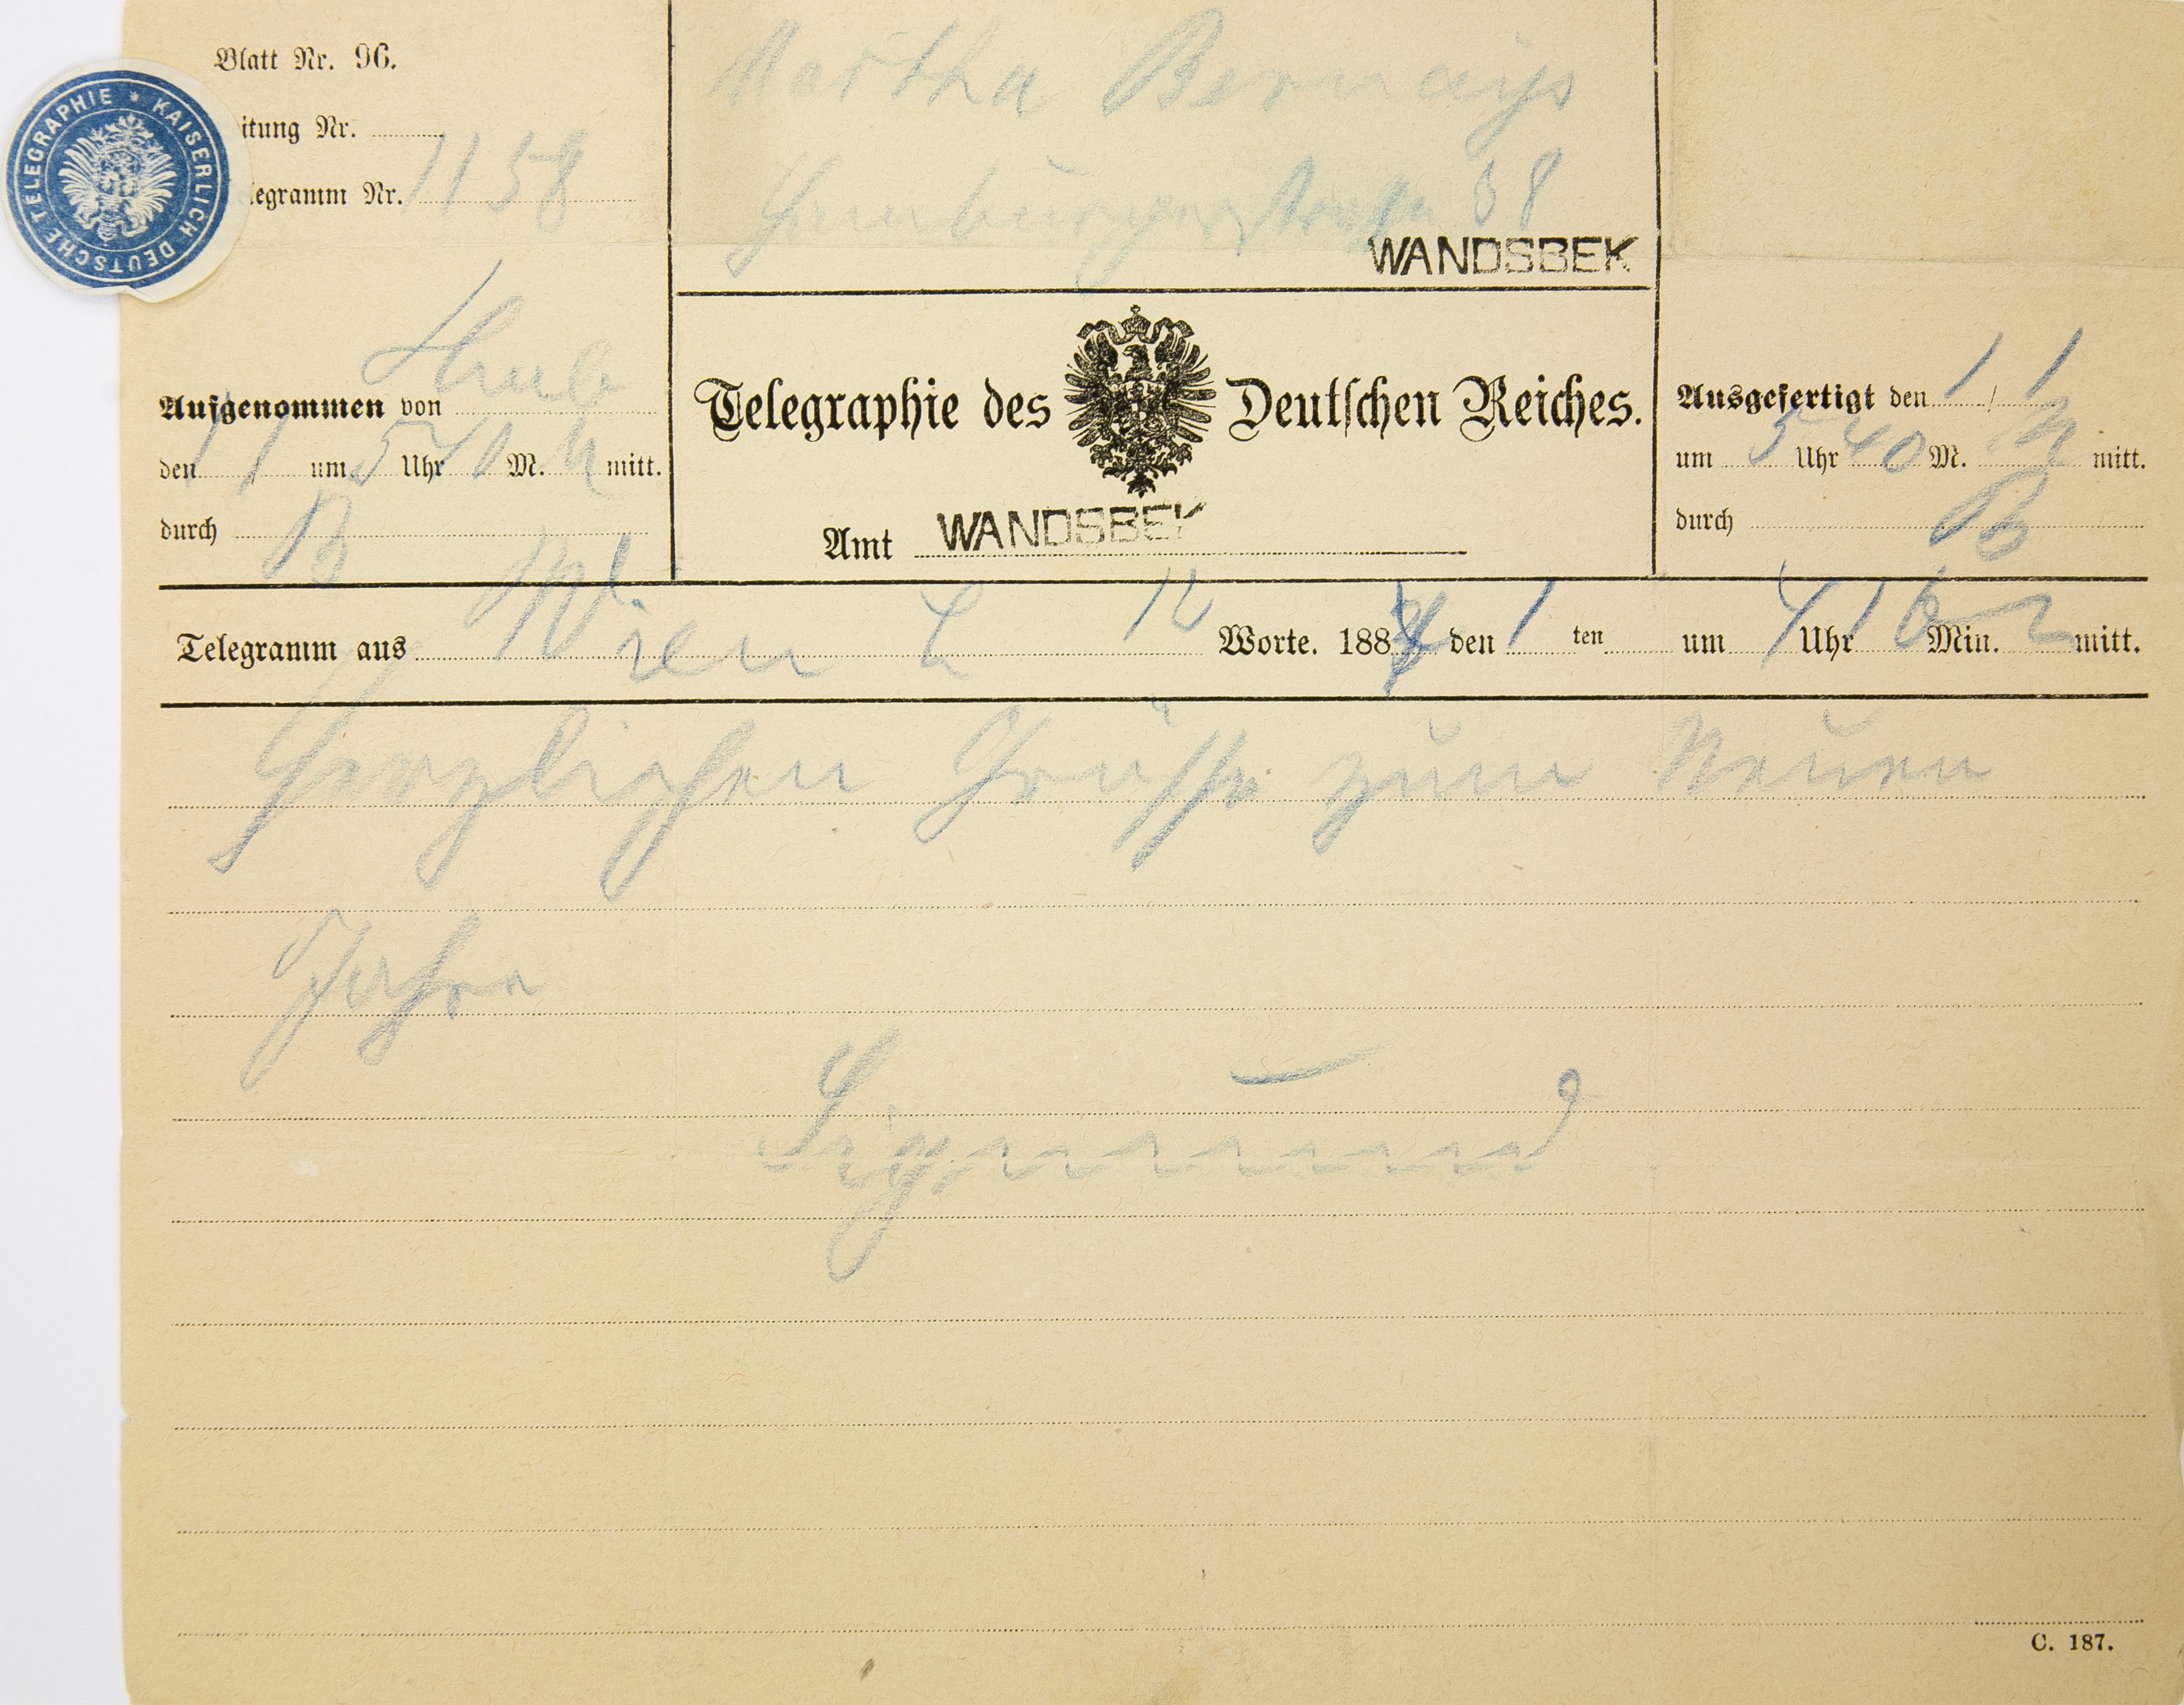 Blatt Nr. 96.
KAISERLICH DEUTSCHE TELEGRAPHIE *
itung Nr.
legramm Nr. 1158
Martha Bernays
Hamburgerstraße 38
WANDSBEK
Aufgenommen von Hmb
den 1/1 um 5 Uhr 40 M. N mitt.
durch B
Telegraphie des Deutschen Reiches.
Amt WANDSBEK
Ausgefertigt den 1/1
um 5 Uhr 40 M. N mitt.
durch B
Telegramm aus Wien L 12 Worte. 188 den 1 ten um 4 Uhr 16 Min. mitt.
Herzlichen Grüsse zum Neuen
Jahre
Sigmund
C. 187.